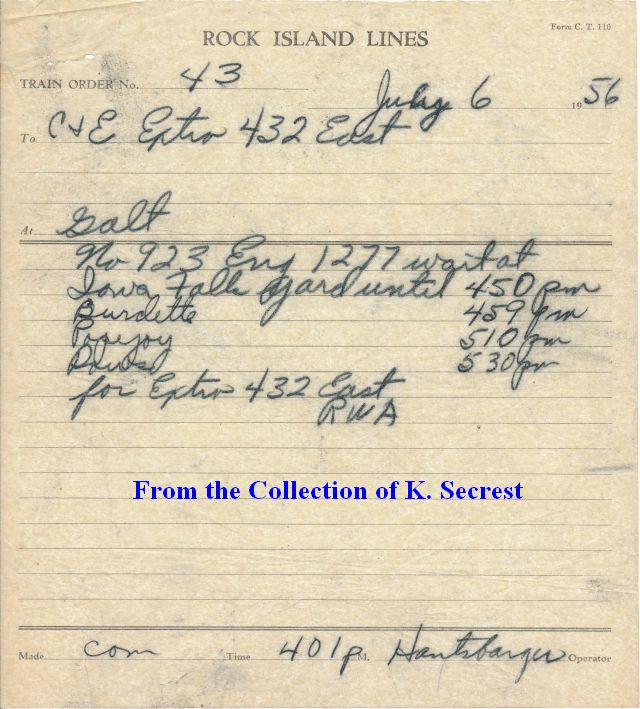 Form C. T. 110
ROCK ISLAND LINES
TRAIN ORDER No. 43
July 6 1956
To C&E Extra 432 East
At Galt
No 923 Eng 1277 wait at
Iowa Falls Yard until 450 pm
Burdette 459 pm
Popejoy 510 pm
Dows 530 pm
for Extra 432 East
RWA
From the Collection of K. Secrest
Made com Time 401p M. Hantsbarger Operator